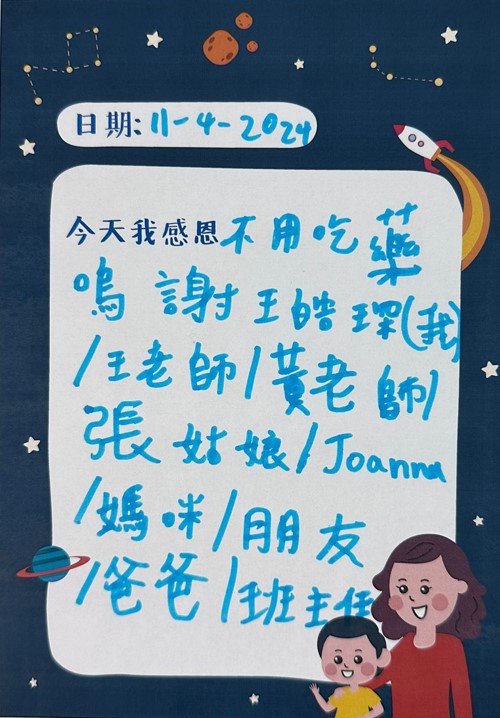 日期: 11-4-2024
今天我感恩不用吃藥
嗚 謝謝王皓琛(我)
/王老師/黃老師/
張姑娘/Joanna
/媽咪/朋友
/爸爸/班主任